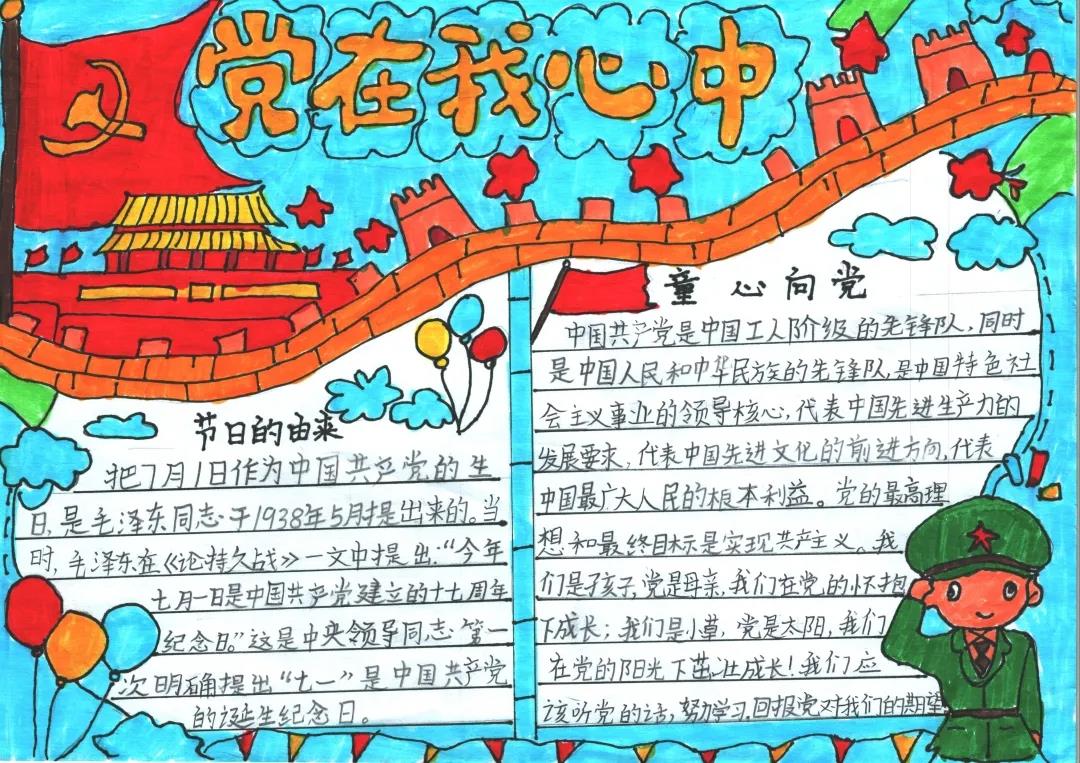 党在我心中
节日的由来
把7月1日作为中国共产党的生
日,是毛泽东同志于1938年5月提出来的。当
时,毛泽东在《论持久战》一文中提出:“今年
七月一日是中国共产党建立的十七周年
纪念日。”这是中央领导同志第一
次明确提出“七一”是中国共产党
的诞生纪念日。
童心向党
中国共产党是中国工人阶级的先锋队,同时
是中国人民和中华民族的先锋队,是中国特色社
会主义事业的领导核心,代表中国先进生产力的
发展要求,代表中国先进文化的前进方向,代表
中国最广大人民的根本利益。党的最高理
想和最终目标是实现共产主义。我
们是孩子,党是母亲,我们在党的怀抱
下成长;我们是小草,党是太阳,我们
在党的阳光下茁壮成长!我们应
该听党的话,努力学习,回报党对我们的期望